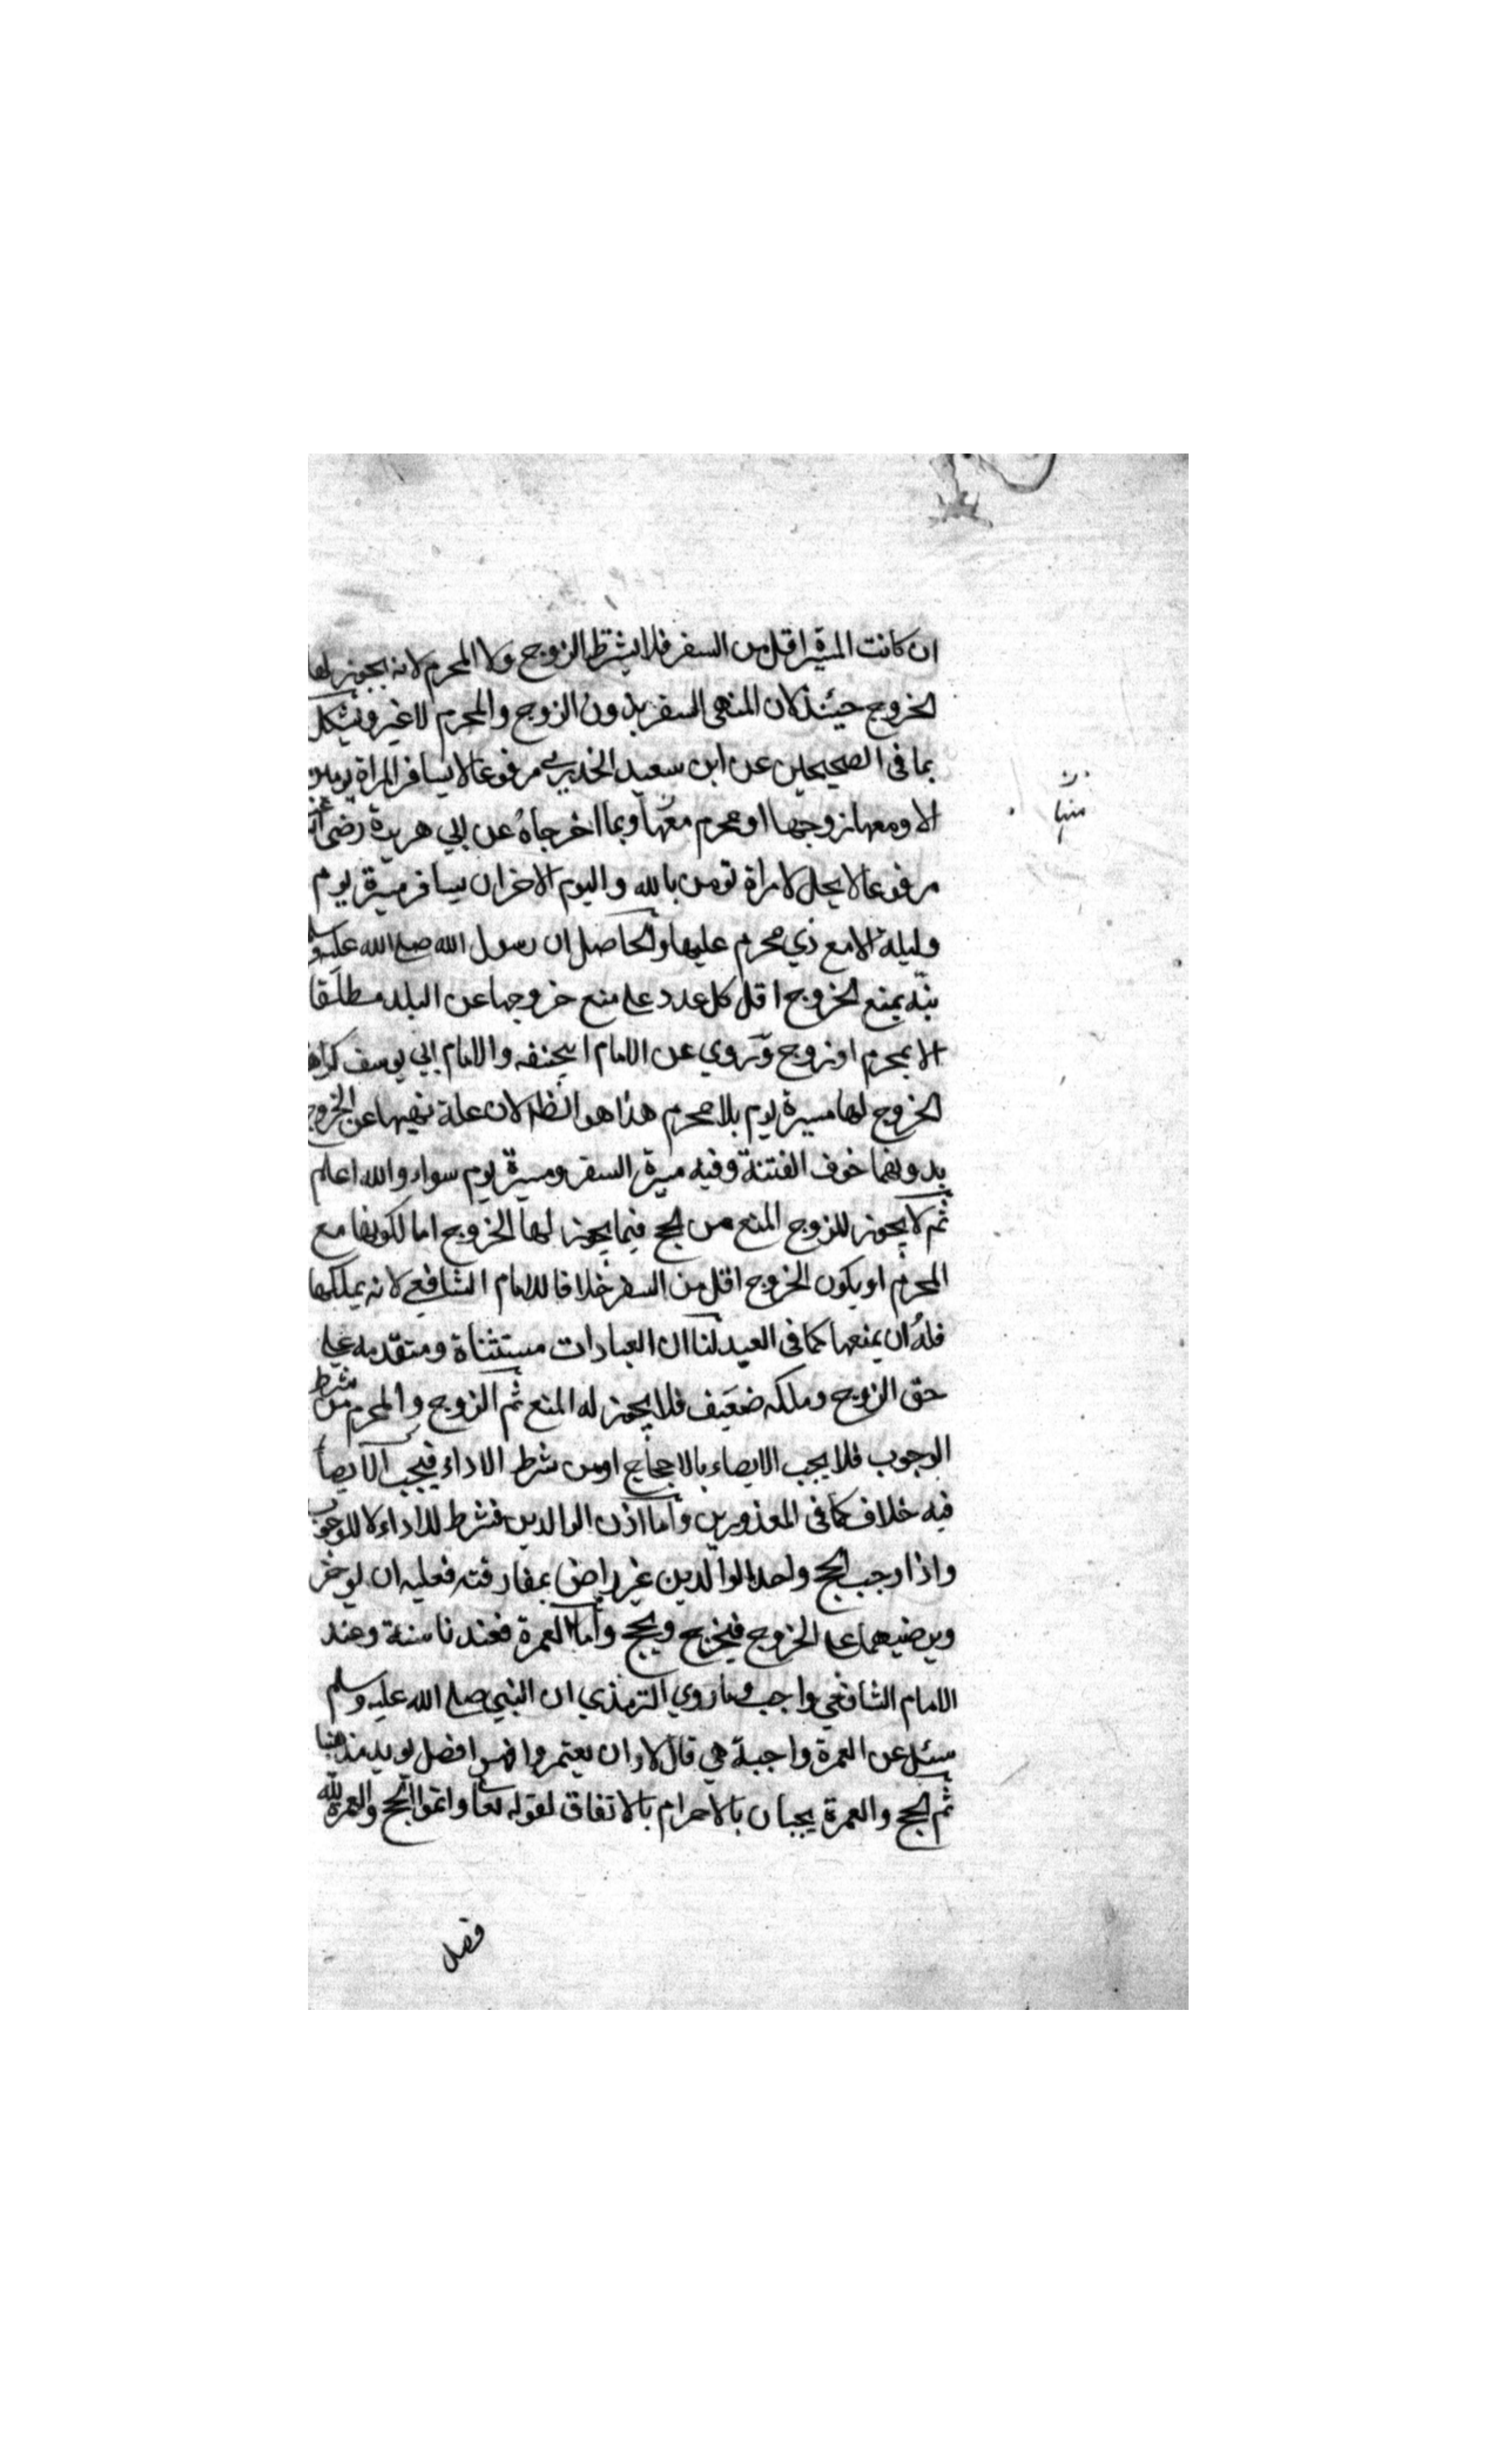 ان كانت المسيرة اقل من السفر فلا يشترط الزوج ولا المحرم لانه يجوز لها
الخروج حينئذ لان المنهى السفر بدون الزوج والمحرم لا غير ويشكل
بما فى الصحيحين عن ابن سعيد الخدري مرفوعا لا يسافر المراة يومين
الا ومعها زوجها او محرم معها وبما اخرجاه عن ابي هريرة رضى
مرفوعا لا يحل لامراة تومن بالله واليوم الاخر ان يسافر مسيرة يوم
وليلة الا مع ذي محرم عليها والحاصل ان رسول الله صلى الله عليه وسلم
نبّه بمنع الخروج اقل كل عدد على منع خروجها عن البلد مطلقا
الا بمحرم او زوج وروي عن الامام ابيحنفه والامام ابي يوسف كراهة
الخروج لها مسيرة يوم بلا محرم هذا هو الظ لان علة نهيها عن الخروج
بدونهما خوف الفتنة وفيه مسيرة السفر ومسيرة يوم سواء والله اعلم
ثم لا يجوز للزوج المنع من الحج فيما يجوز لها الخروج اما لكونها مع
المحرم او يكون الخروج اقل من السفر خلافا للامام الشافعي لانه يملكها
فله ان يمنعها كما فى العبد لنا ان العبادات مستثناة ومتقدمه على
حق الزوج وملكه ضعيف فلا يجوز له المنع ثم الزوج والمحرم من شرط
الوجوب فلا يجب الايصاء بالاجماع او من شرط الاداء فيجب الايصا
فيه خلاف كما فى المعذورين واما اذن الوالدين فشرط للاداء لا للوجوب
واذا وجب الحج واحد الوالدين غير راض بمفارقته فعليه ان يوخر
ويرضيهما على الخروج فيخرج ويحج واما العمرة فعندنا سنة وعند
الامام الشافعي واجب وما روي الترمذي ان النبي صلى الله عليه وسلم
سئل عن العمرة واجبة هي قال لا وان يعتمروا فهو افضل يويد مذهبنا
ثم الحج والعمرة يجبان بالاحرام بالاتفاق لقوله تعا واتموا الحج والعمرة لله
منها
فصل